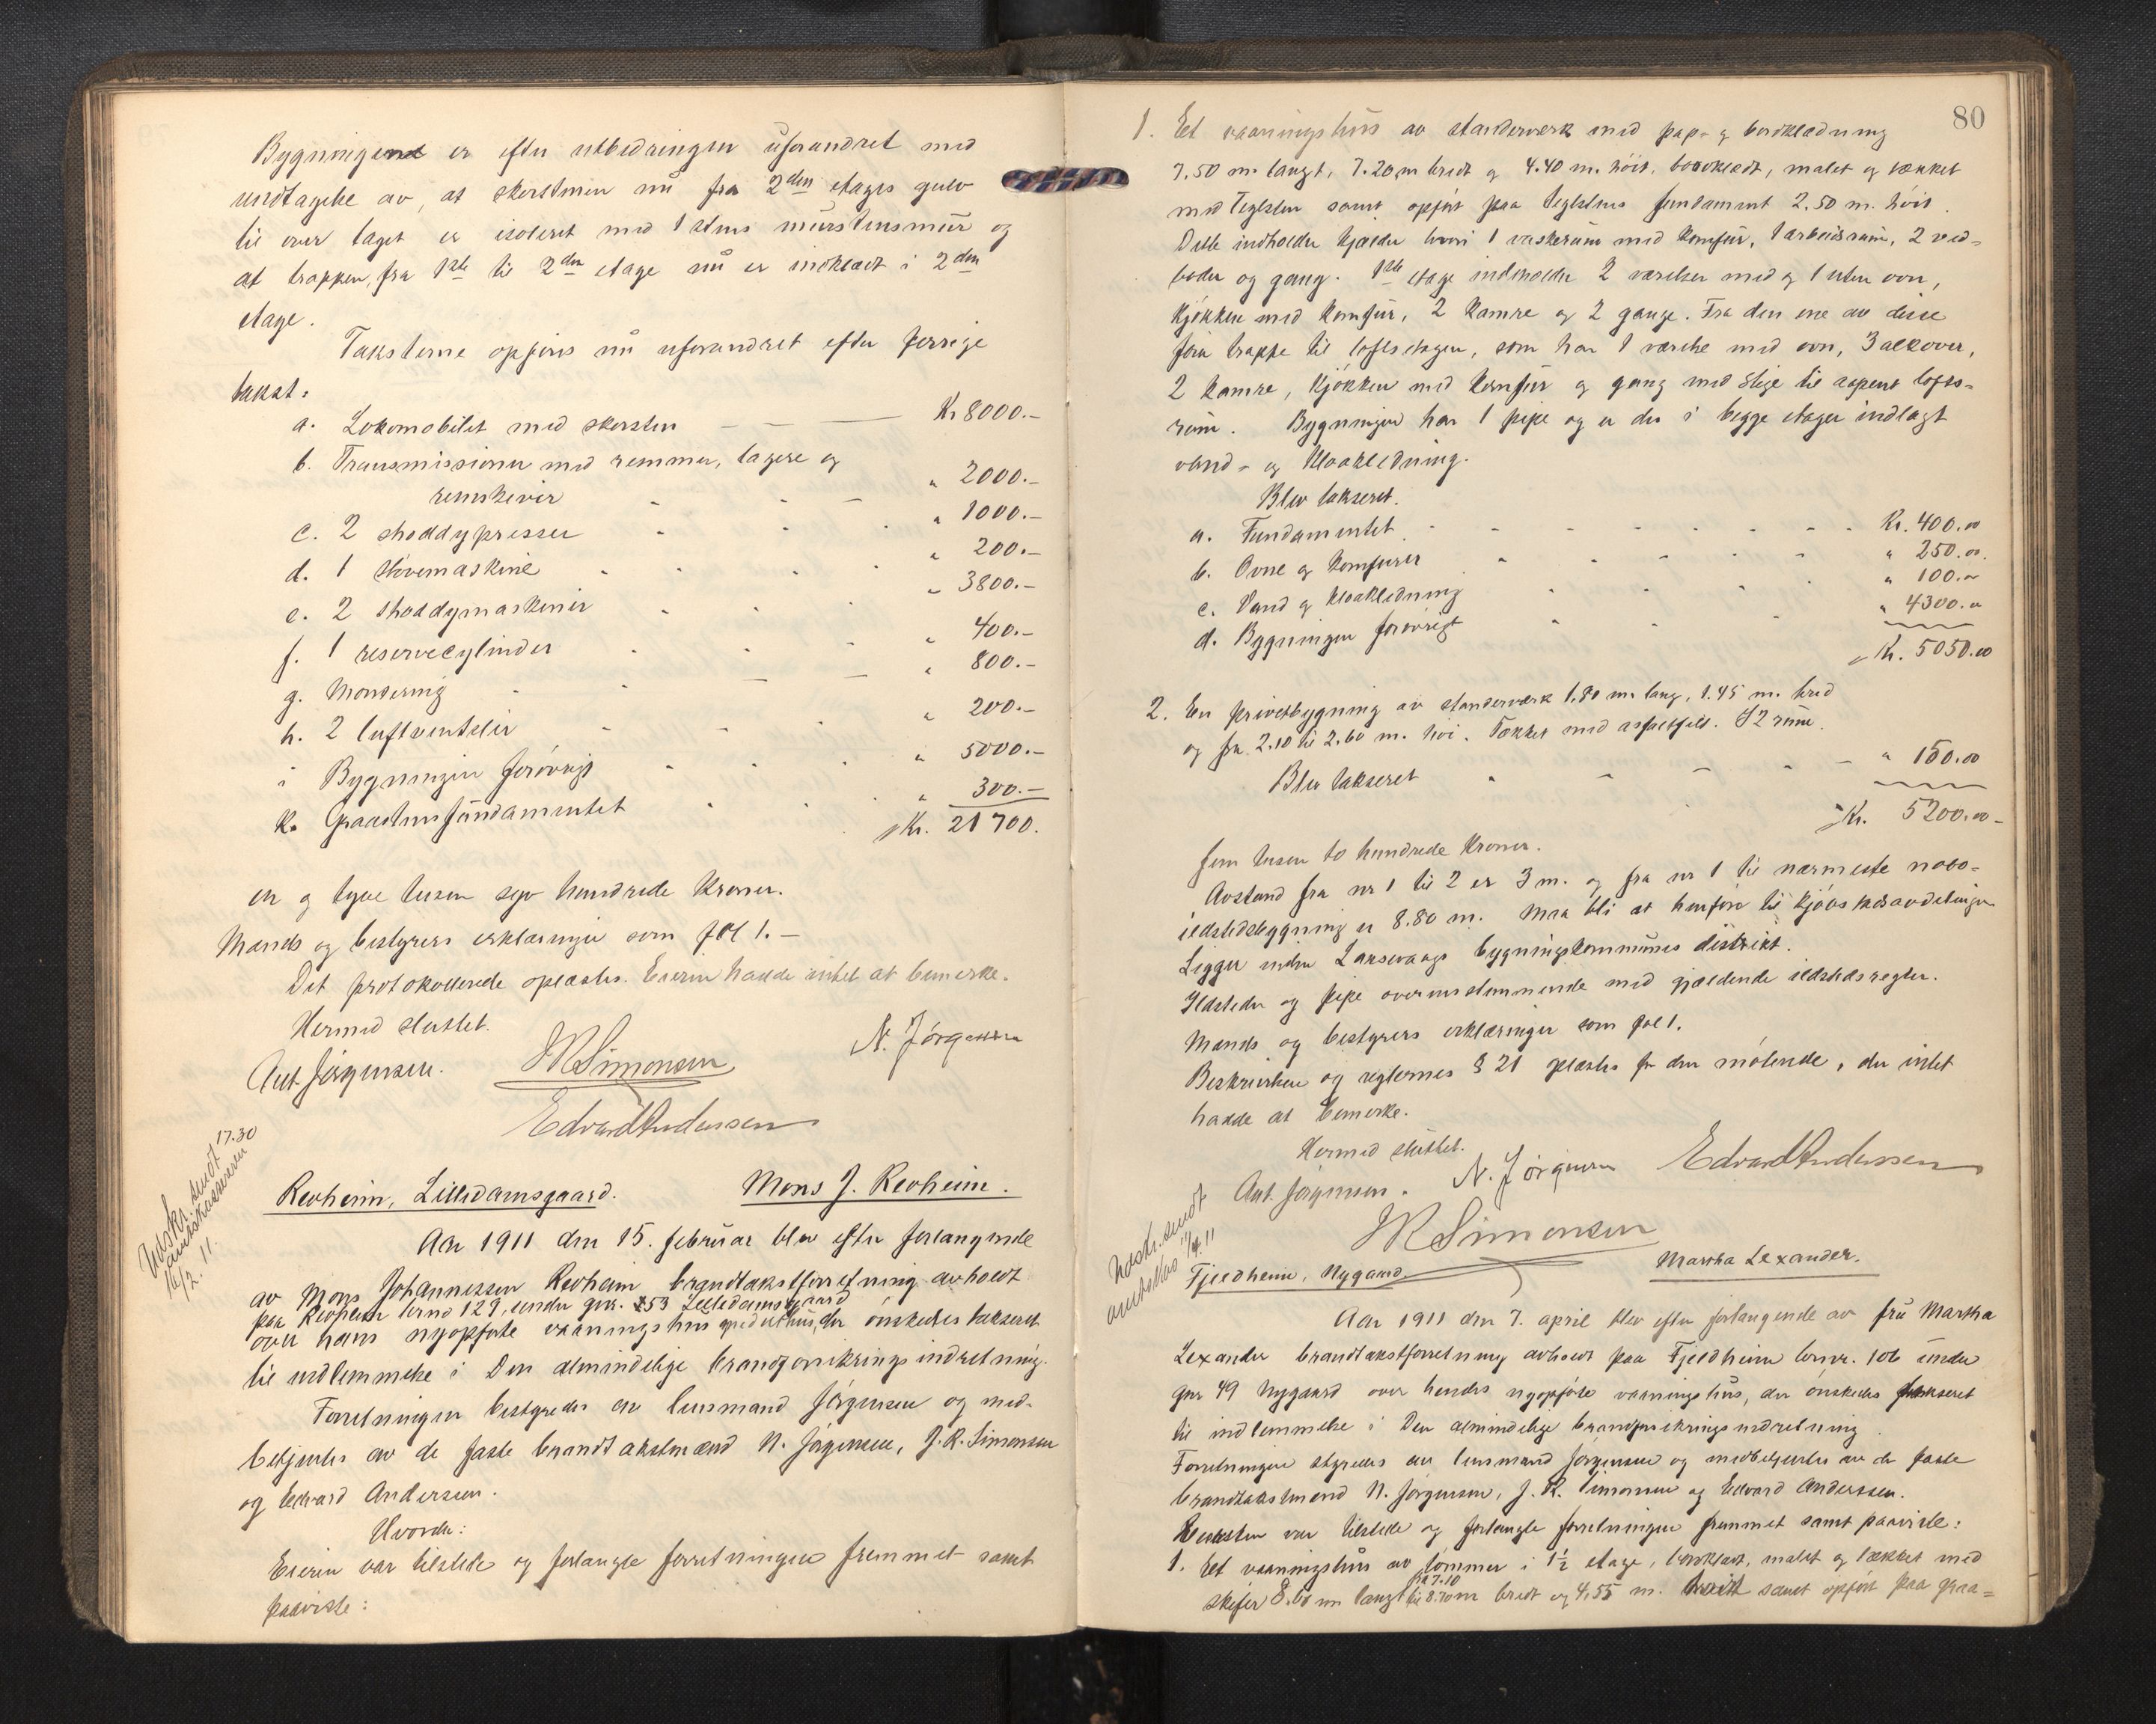 Bygningene er efter utbedringen uforandret med
undtagelse av, at skorstenen nu fra 2den etages gulv
til over taget er isoleret med 1 stens murstensmur og
at trappen fra 1ste til 2den etage nu er indklædt i 2den
etage.
Taksterne opføres nu uforandret efter forrige
takst:
a. Lokomobilet med skorsten Kr 8000.-
b. Transmissioner med remmer, lagere og
remskiver " 2000.-
c. 2 shoddypresser " 1000.-
d. 1 støvemaskine " 200.-
e. 2 shoddymaskiner " 3800.-
f. 1 reservecylinder " 400.-
g. Montering " 800.-
h. 2 luftventiler " 200.-
i Bygningen forøvrigt " 5000.-
k. Graastensfundamentet " 300.-
Kr. 21700.
en og tyve tusen syv hundrede kroner.
Mænds og bestyrers erklæringer som fol 1.-
Det protokollerede oplæstes. Eieren hadde intet at bemerke.
Hermed sluttet.
Ant. Jørgensen. J R Simonsen N. Jørgensen
Edvard Anderssen
Utskr. sendt 17.30
amtskassereren
16/2. 11.
Revheim, Lilledamsgaard. Mons J. Revheim.
Aar 1911 den 15. februar blev efter forlangende
av Mons Johannessen Revheim brandtakstforretning avholdt
paa Revheim brno 129, under gnr. 153 Lilledamsgaard
over hans nyopførte vaaningshus og privethus, der ønskedes takseret
til indlemmelse i Den almindelige brandforsikringsindretning.
Forretningen bestyredes av lensmand Jørgensen og med-
betjentes av de faste brandtakstmænd N. Jørgensen, J. R. Simonsen
og Edvard Andersen.
Hvorda:
Eieren var tilstede og forlangte forretningen fremmet samt
paaviste:
80
1. Et vaaningshus av standerverk med pap- og bordklædning
7.50 m. langt, 7.20 m bredt og 4.40 m. høit, bordklædt, malet og tækket
med teglsten samt opført paa teglstens fundament 2.50 m. høit.
Dette indholder kjælder hvori 1 vaskerum med komfur, 1 arbeidsrum, 2 ved-
boder og gang. 1ste etage indholder 2 værelser med og 1 uten ovn,
kjøkken med komfur, 2 kamre og 2 gange. Fra den ene av disse
fører trappe til loftsetagen, som har 1 værelse med ovn, 3 alkover,
2 kamre, kjøkken med komfur og gang med stige til aapent lofts-
rum. Bygningen har 1 pipe og er der i begge etager indlagt
vand- og kloakledning.
Blev takseret.
a. Fundamentet Kr. 400.00
b. Ovne og komfurer " 250.00
c. Vand og kloakledning " 100.00
d. Bygningen forøvrigt " 4300.00
Kr. 5050.00
2. En privetbygning av standerverk 1.80 m. lang, 1.45 m. bred
og fra 2.10 til 2.60 m. høi. Tækket med asfaltfilt. I 2 rum.
Blev takseret " 150.00
Kr. 5200.00
fem tusen to hundrede kroner.
Avstand fra nr 1 til 2 er 3 m. og fra nr 1 til nærmeste nabo-
ildstedsbygning er 8.80 m. Maa bli at henføre til kjøbstadsavdelingen
Ligger inden Laksevaags bygningskommunes distrikt.
Ildsteder og pipe overensstemmende med gjældende ildstedsregler.
Mænds og bestyrers erklæringer som fol 1.
Beskrivelsen og reglernes § 21 oplæstes for den møtende, der intet
hadde at bemerke.
Hermed sluttet.
Ant. Jørgensen. N. Jørgensen Edvard Anderssen
J R Simonsen
Utskr. sendt
amtskas 11/4 11
Fjeldheim, Nygaard. Martha Lexander.
Aar 1911 den 7. april blev efter forlangende av fru Martha
Lexander brandtakstforretning avholdt paa Fjeldheim brnr. 106 under
gnr 49 Nygaard over hendes nyopførte vaaningshus, der ønskedes takseret
til indlemmelse i Den almindelige brandforsikringsindretning.
Forretningen styredes av lensmand Jørgensen og medbetjentes av de faste
brandtakstmænd N. Jørgensen, J. R. Simonsen og Edvard Anderssen.
var tilstede og forlangte forretningen fremmet samt paaviste:
1. Et vaaningshus av tømmer i 1½ etage, bordklædt, malet og tækket med
skifer 8.60 m langt fra 7.10 til 8.70 m bredt og 4.55 m. høit samt opført paa graa-